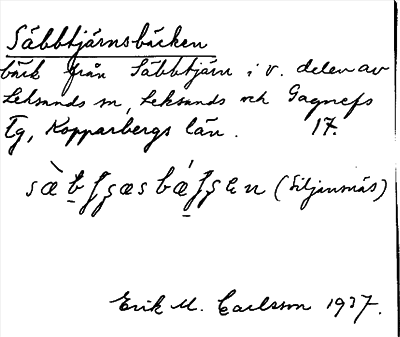 Säbbtjärnsbäcken
bäck från Säbbtjärn i v. delen av
Leksands sn, Leksands och Gagnefs
Tg, Kopparbergs län. 17.
(Siljansnäs)
Erik M. Carlsson 1937.